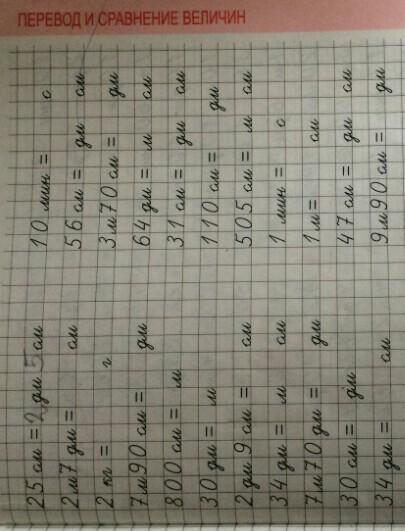 ПЕРЕВОД И СРАВНЕНИЕ ВЕЛИЧИН
25 см = 2 дм 5 см
2 м 7 дм = см
2 кг = г
7 м 90 см = дм
800 см = м
30 дм = м
2 дм 9 см = см
34 дм = м см
7 м 70 дм = дм
30 см = дм
34 дм = см
10 мин = с
56 см = дм см
3 м 70 см = дм
64 дм = м см
31 см = дм см
110 см = дм
505 см = м см
1 мин = с
1 м = см
47 см = дм см
9 м 90 см = дм